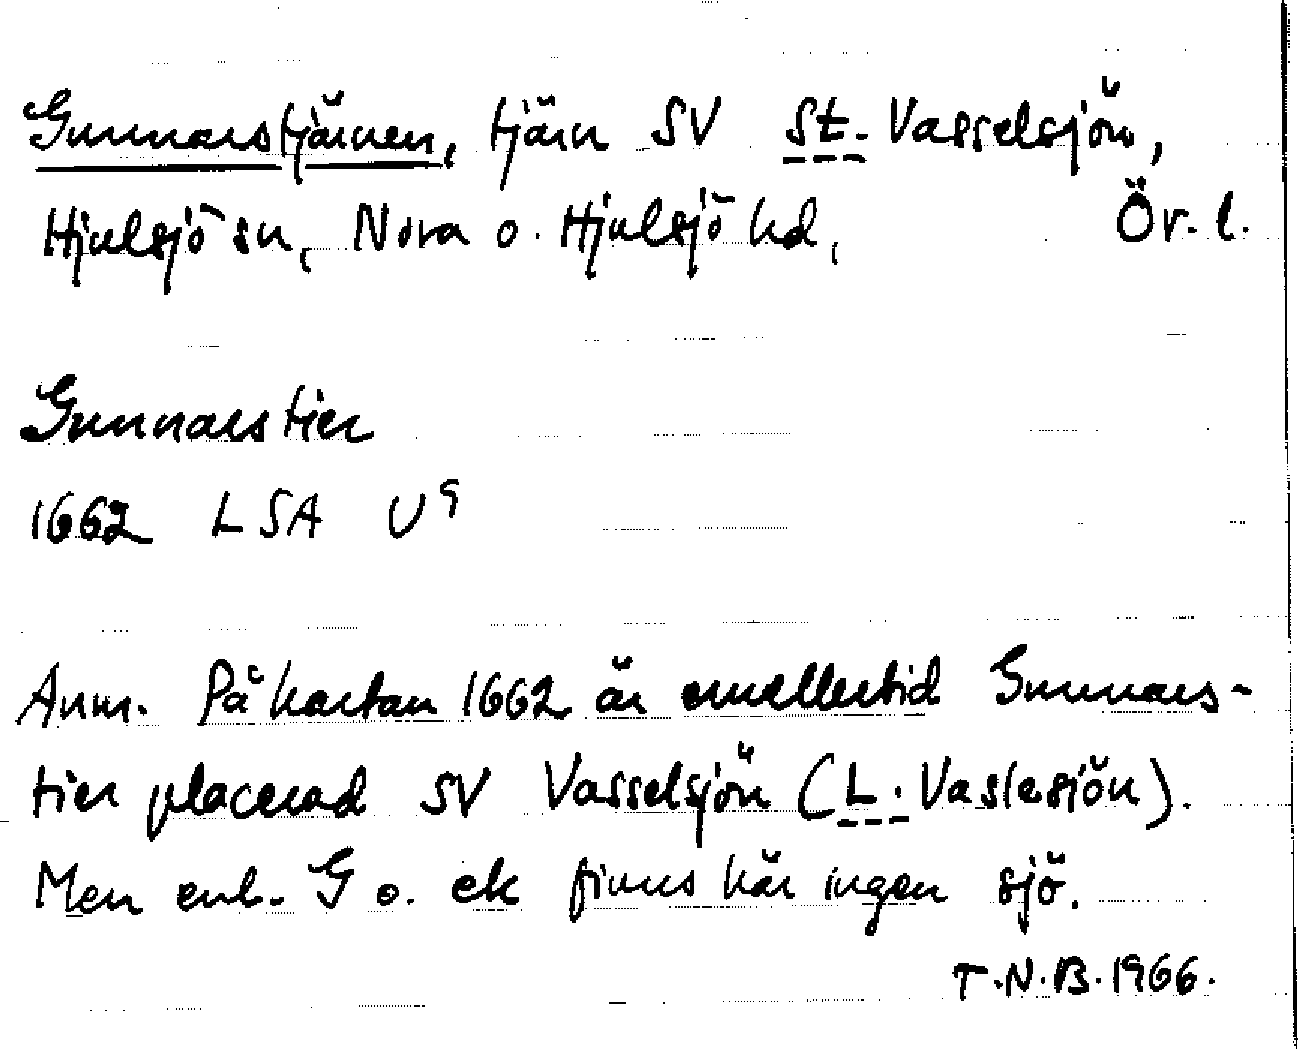 Gunnarstjärnen, tjärn SV St. Vasselsjön,
Hjulsjö sn, Nora o. Hjulsjö hd, Ör. l.
Gunnarstier
1662 LSA U⁹
Anm. På kartan 1662 är emellertid Gunnars-
tier placerad SV Vasselsjön (L. Vaslesiön).
Men enl. G o. ek finns här ingen sjö.
T.N.B. 1966.